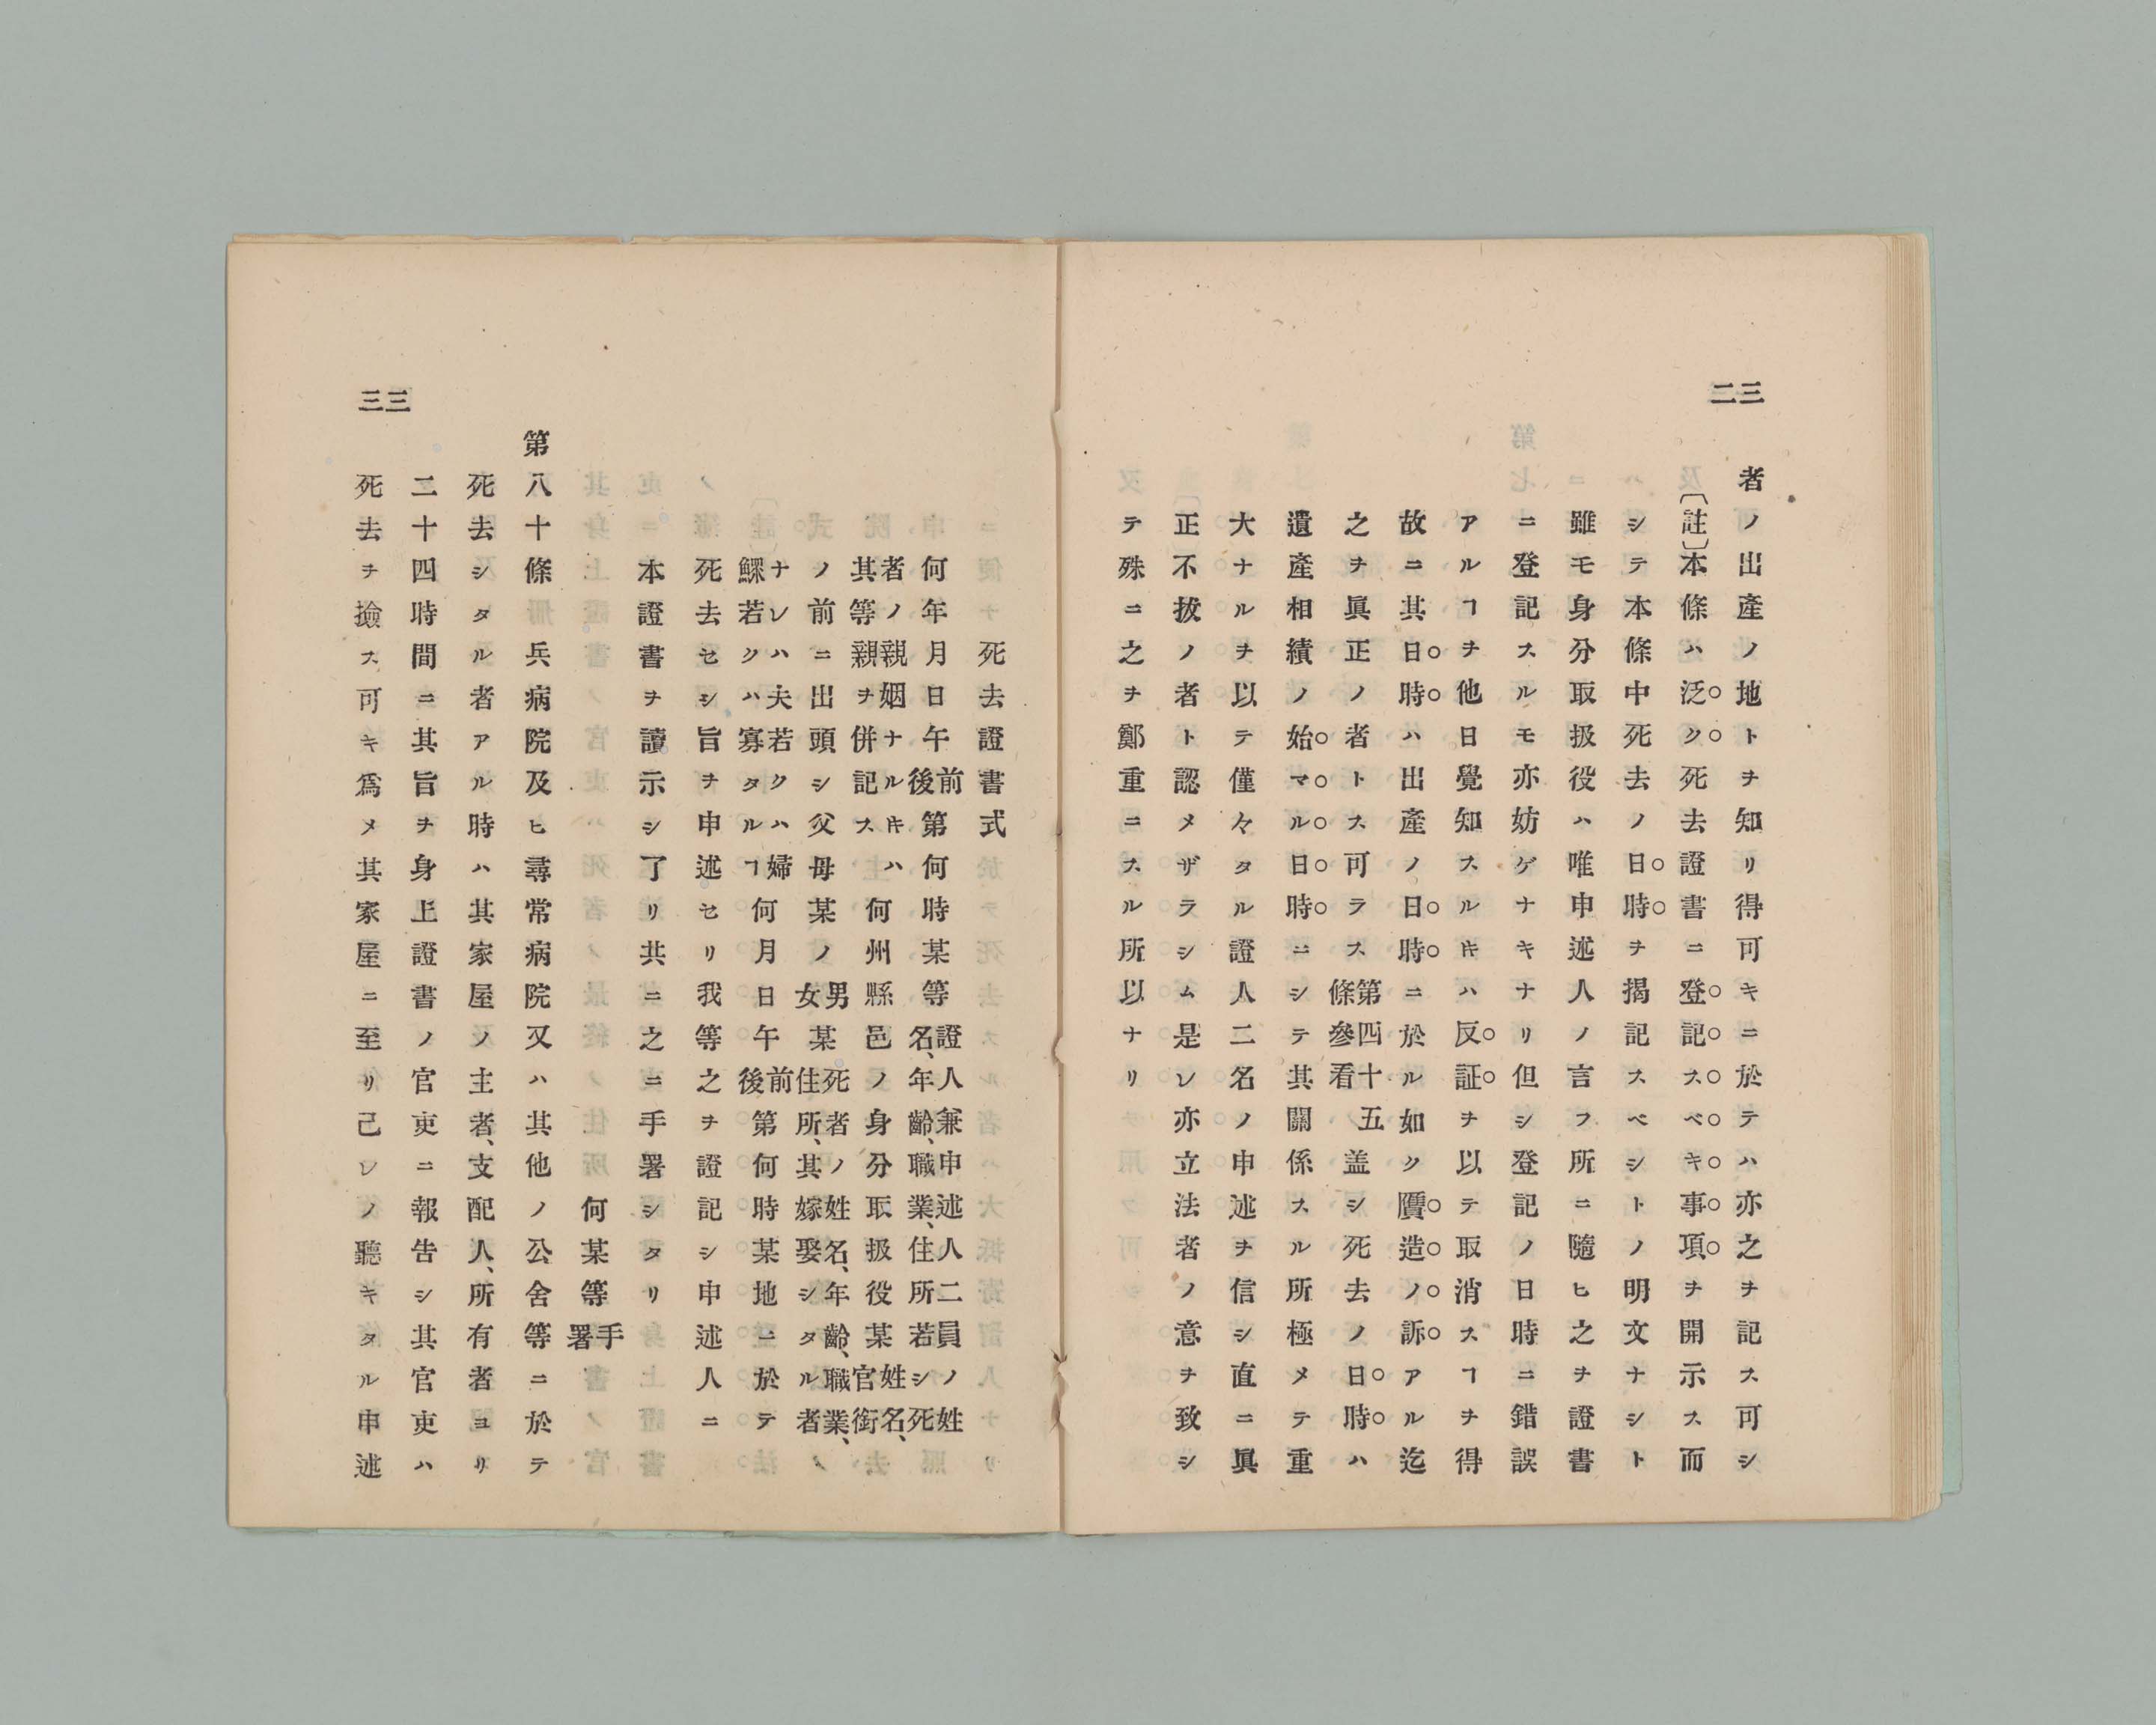 三二
者ノ出產ノ地トヲ知リ得可キニ於テハ亦之ヲ記ス可シ
〔註〕本條ハ泛ク死去證書ニ登記スベキ事項ヲ開示ス而
シテ本條中死去ノ日時ヲ揭記スベシトノ明文ナシト
雖モ身分取扱役ハ唯申述人ノ言フ所ニ隨ヒ之ヲ證書
ニ登記スルモ亦妨ゲナキナリ但シ登記ノ日時ニ錯誤
アルヿヲ他日覺知スルキハ反証ヲ以テ取消スヿヲ得
故ニ其日時ハ出產ノ日時ニ於ル如ク贋造ノ訴アル迄
之ヲ眞正ノ者トス可ラス第四十五條參看盖シ死去ノ日時ハ
遺產相續ノ始マル日時ニシテ其關係スル所極メテ重
大ナルヲ以テ僅々タル證人二名ノ申述ヲ信シ直ニ眞
正不拔ノ者ト認メザラシム是レ亦立法者ノ意ヲ致シ
テ殊ニ之ヲ鄭重ニスル所以ナリ
三三
死去證書式
何年月日午前後第何時某等證人兼申述人二員ノ姓名、年齡、職業、住所若シ死
者ノ親姻ナルキハ其等親ヲ併記ス何州縣邑ノ身分取扱役某姓名、官銜
ノ前ニ出頭シ父母某ノ男女某死者ノ姓名、年齡、職業、住所、其嫁娶シタル者
ナレハ夫若クハ婦鰥若クハ寡タルヿ何月日午前後第何時某地ニ於テ
死去セシ旨ヲ申述セリ我等之ヲ證記シ申述人ニ
本證書ヲ讀示シ了リ共ニ之ニ手署シタリ
何某等手署
第八十條　兵病院及ヒ尋常病院又ハ其他ノ公舍等ニ於テ
死去シタル者アル時ハ其家屋ノ主者、支配人、所有者ヨリ
二十四時間ニ其旨ヲ身上證書ノ官吏ニ報告シ其官吏ハ
死去ヲ撿ス可キ爲メ其家屋ニ至リ己レノ聽キタル申述